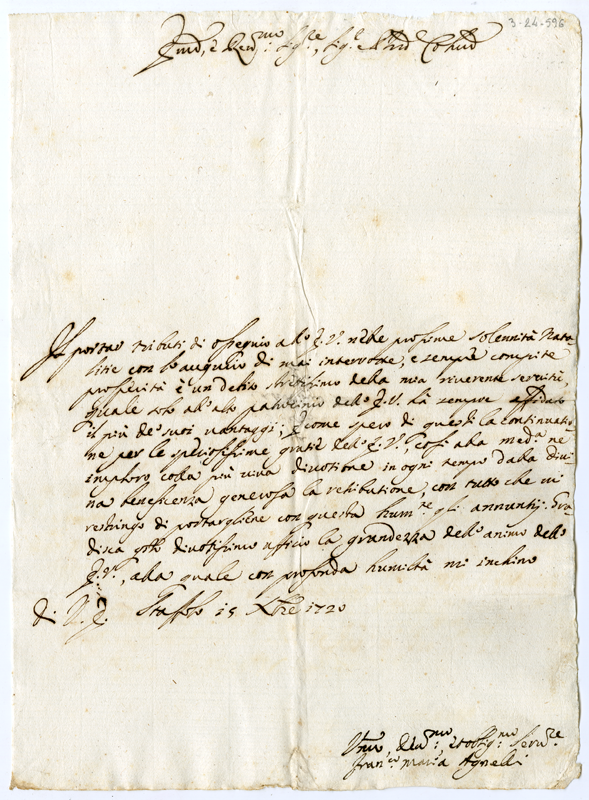 3-24-596
Em.º, e Rev.mo Sig.re, Sig.r
Il portar tributi di ossequio all' E.V. nelle prossime solennità Nata-
litie con l'augurio di mai interrotte, e sempre compite
prosperità è un debito strettissimo della mia riverente servitù,
quale solo all'alto patrocinio dell' E.V. hà sempre
il più de' suoi vantaggi; e come spero di questi la continuatio-
ne per le speciosissime gratie dell' E.V., così alla med.a ne
imploro colla più viva divotione in ogni tempo dalla Divi-
na beneficenza generosa la retributione, con tutto che mi
restringo di portargliene con questa hum.te gli annuntij. Gra
disca q.to divotissimo ufficio la grandezza dell'animo dell'
E.V., alla quale con profonda humiltà mi inchino
Di V.E. Staffolo 15 Xbre 1720
Um.o, Dev.mo, et obblig.mo Serv.re
Fran.co Maria Agnelli